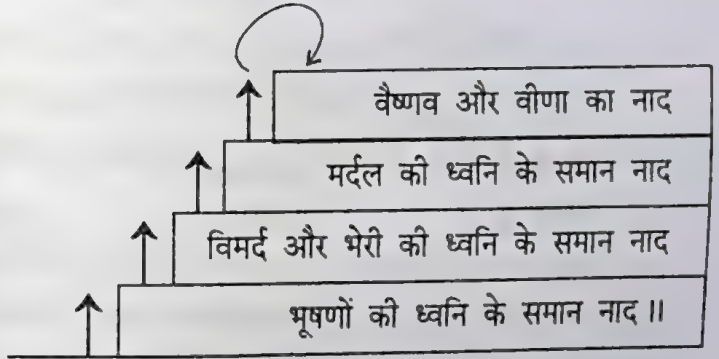 वैष्णव और वीणा का नाद
मर्दल की ध्वनि के समान नाद
विमर्द और भेरी की ध्वनि के समान नाद
भूषणों की ध्वनि के समान नाद ॥